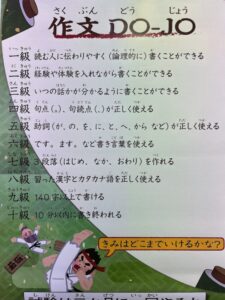 さく ぶん どう じょう
作文DO-10
一級 読む人に伝わりやすく(論理的に)書くことができる
二級 経験や体験を入れながら書くことができる
三級 いつの話かが分かるように書くことができる
四級 句点(。)、句読点(、)が正しく使える
五級 助詞(が、の、を、に、と、へ、から など)が正しく使える
六級 です。ます。など書き言葉を使える
七級 3段落(はじめ、なか、おわり)を作れる
八級 習った漢字とカタカナ語を正しく使える
九級 140字以上で書ける
十級 10分以内に書き終われる
きみはどこまでいけるかな?